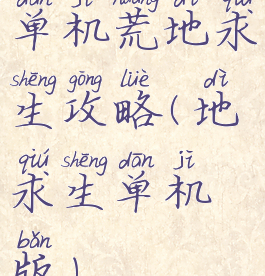 dān jī huāng dì qiú
单机荒地求
shēng gōng lüè dì
生攻略(地
qiú shēng dān jī
求生单机
bǎn
版)